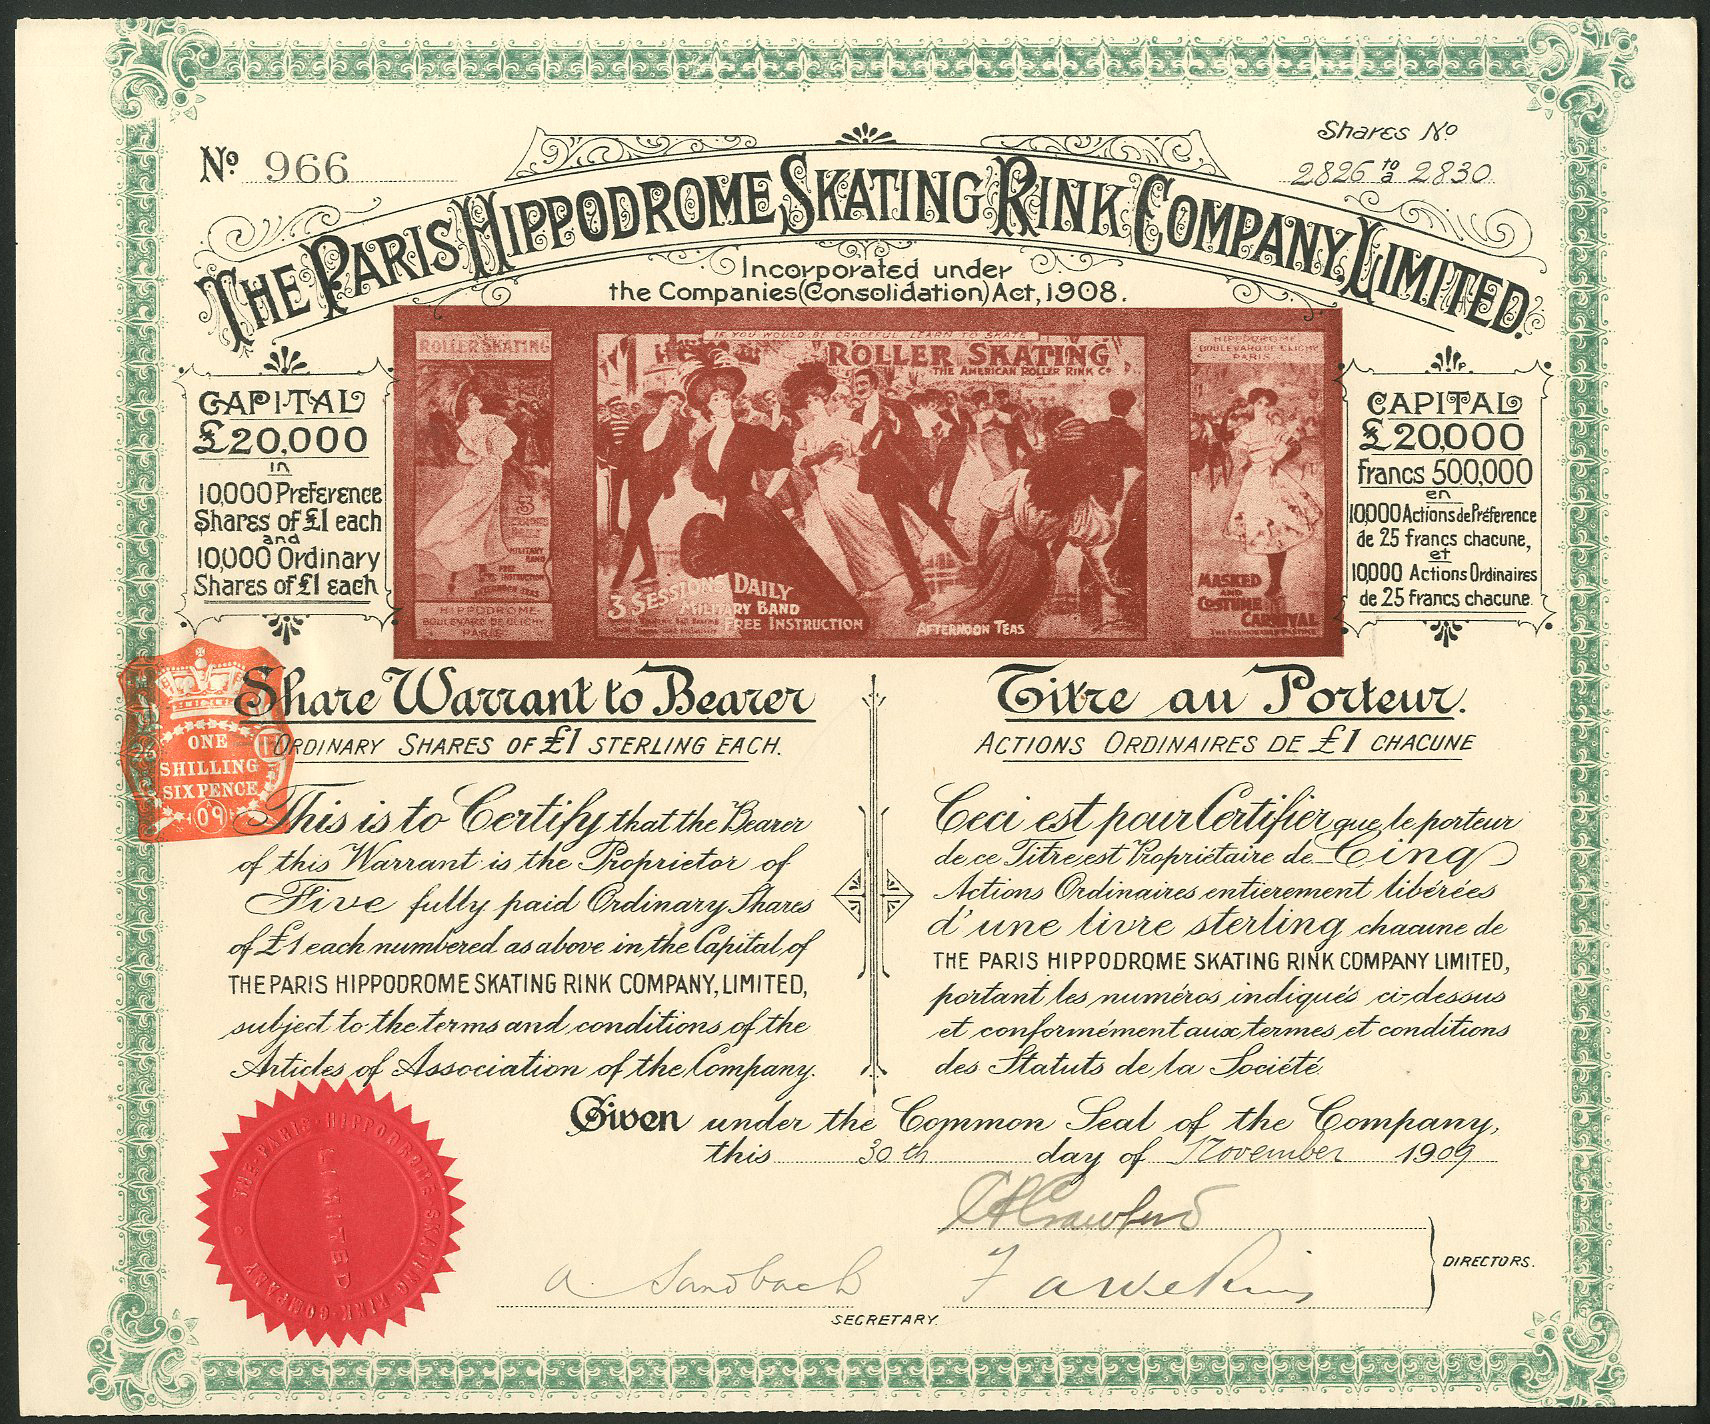 No. 966
Shares No
2826 to/a 2830
THE PARIS HIPPODROME SKATING RINK COMPANY, LIMITED.
Incorporated under
the Companies (Consolidation) Act, 1908.
CAPITAL
£20,000
in
10,000 Preference
Shares of £1 each
and
10,000 Ordinary
Shares of £1 each
ROLLER SKATING
3
MILITARY
BAND
FREE
INSTRUCTION
AFTERNOON TEAS
HIPPODROME
BOULEVARD DE CLICHY
PARIS
IF YOU WOULD BE GRACEFUL LEARN TO SKATE
ROLLER SKATING
THE AMERICAN ROLLER RINK Co
3 SESSIONS DAILY
MILITARY BAND
FREE INSTRUCTION
AFTERNOON TEAS
HIPPODROME
BOULEVARD DE CLICHY
PARIS
MASKED
AND
COSTUME
CARNIVAL
CAPITAL
£20,000
francs 500,000
en
10,000 Actions de Préference
de 25 francs chacune,
et
10,000 Actions Ordinaires
de 25 francs chacune.
Share Warrant to Bearer
ORDINARY SHARES OF £1 STERLING EACH.
ONE
SHILLING
SIXPENCE
09
This is to Certify that the Bearer
of this Warrant is the Proprietor of
Five fully paid Ordinary Shares
of £1 each numbered as above in the Capital of
THE PARIS HIPPODROME SKATING RINK COMPANY, LIMITED,
subject to the terms and conditions of the
Articles of Association of the Company.
Titre au Porteur.
ACTIONS ORDINAIRES DE £1 CHACUNE
Ceci est pour Certifier que le porteur
de ce Titre est Propriétaire de Cinq
Actions Ordinaires entierement libérées
d'une livre sterling chacune de
THE PARIS HIPPODROME SKATING RINK COMPANY LIMITED,
portant les numéros indiqués ci-dessus
et conformément aux termes et conditions
des Statuts de la Société
Given under the Common Seal of the Company,
this 30th day of November 1909
THE PARIS HIPPODROME SKATING RINK COMPANY
LIMITED
Crawford
A. Sandbach
DIRECTORS.
SECRETARY.